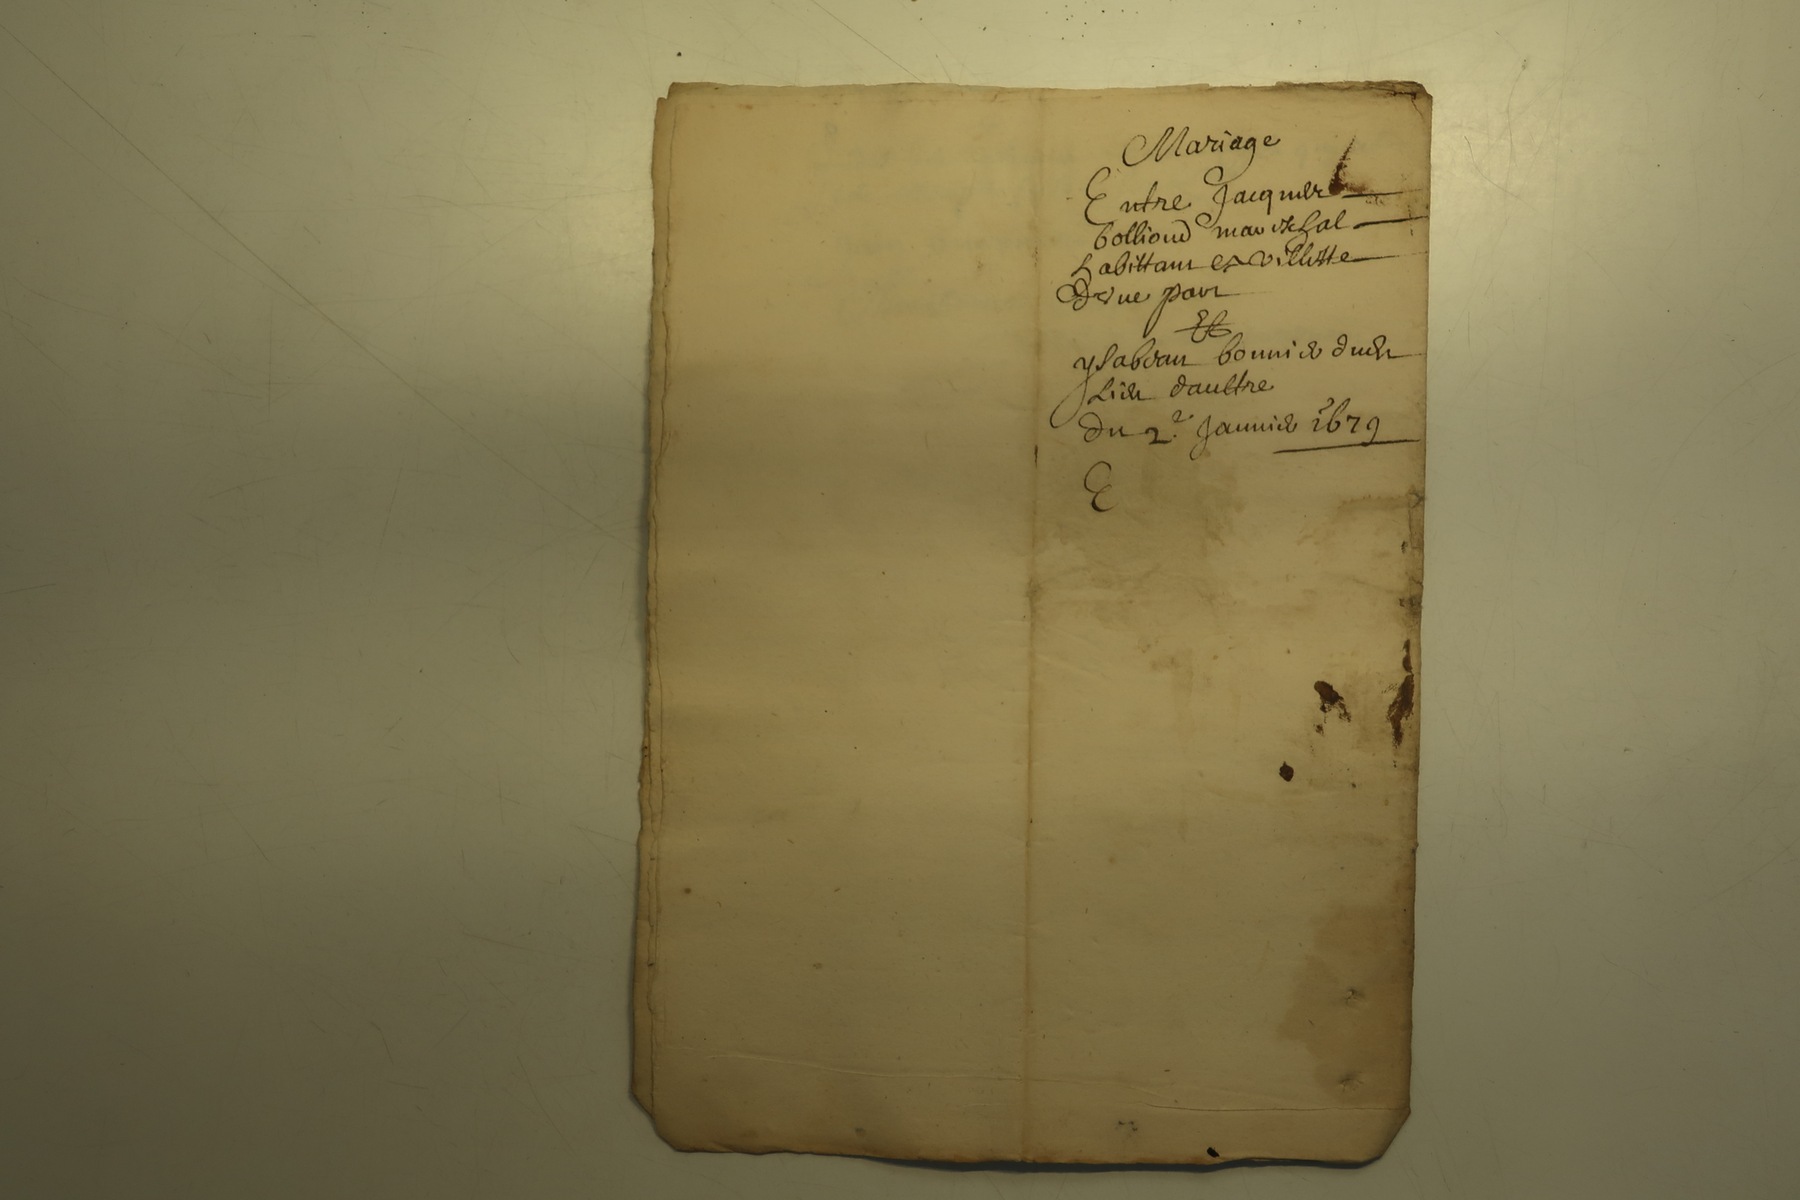 Mariage
Entre Jacques
bolliond mareschal
habittant es villette
d'vne part
Et
ysabeau bonnier dudit
Lieu d'aultre
du 2e Januier 1679
E